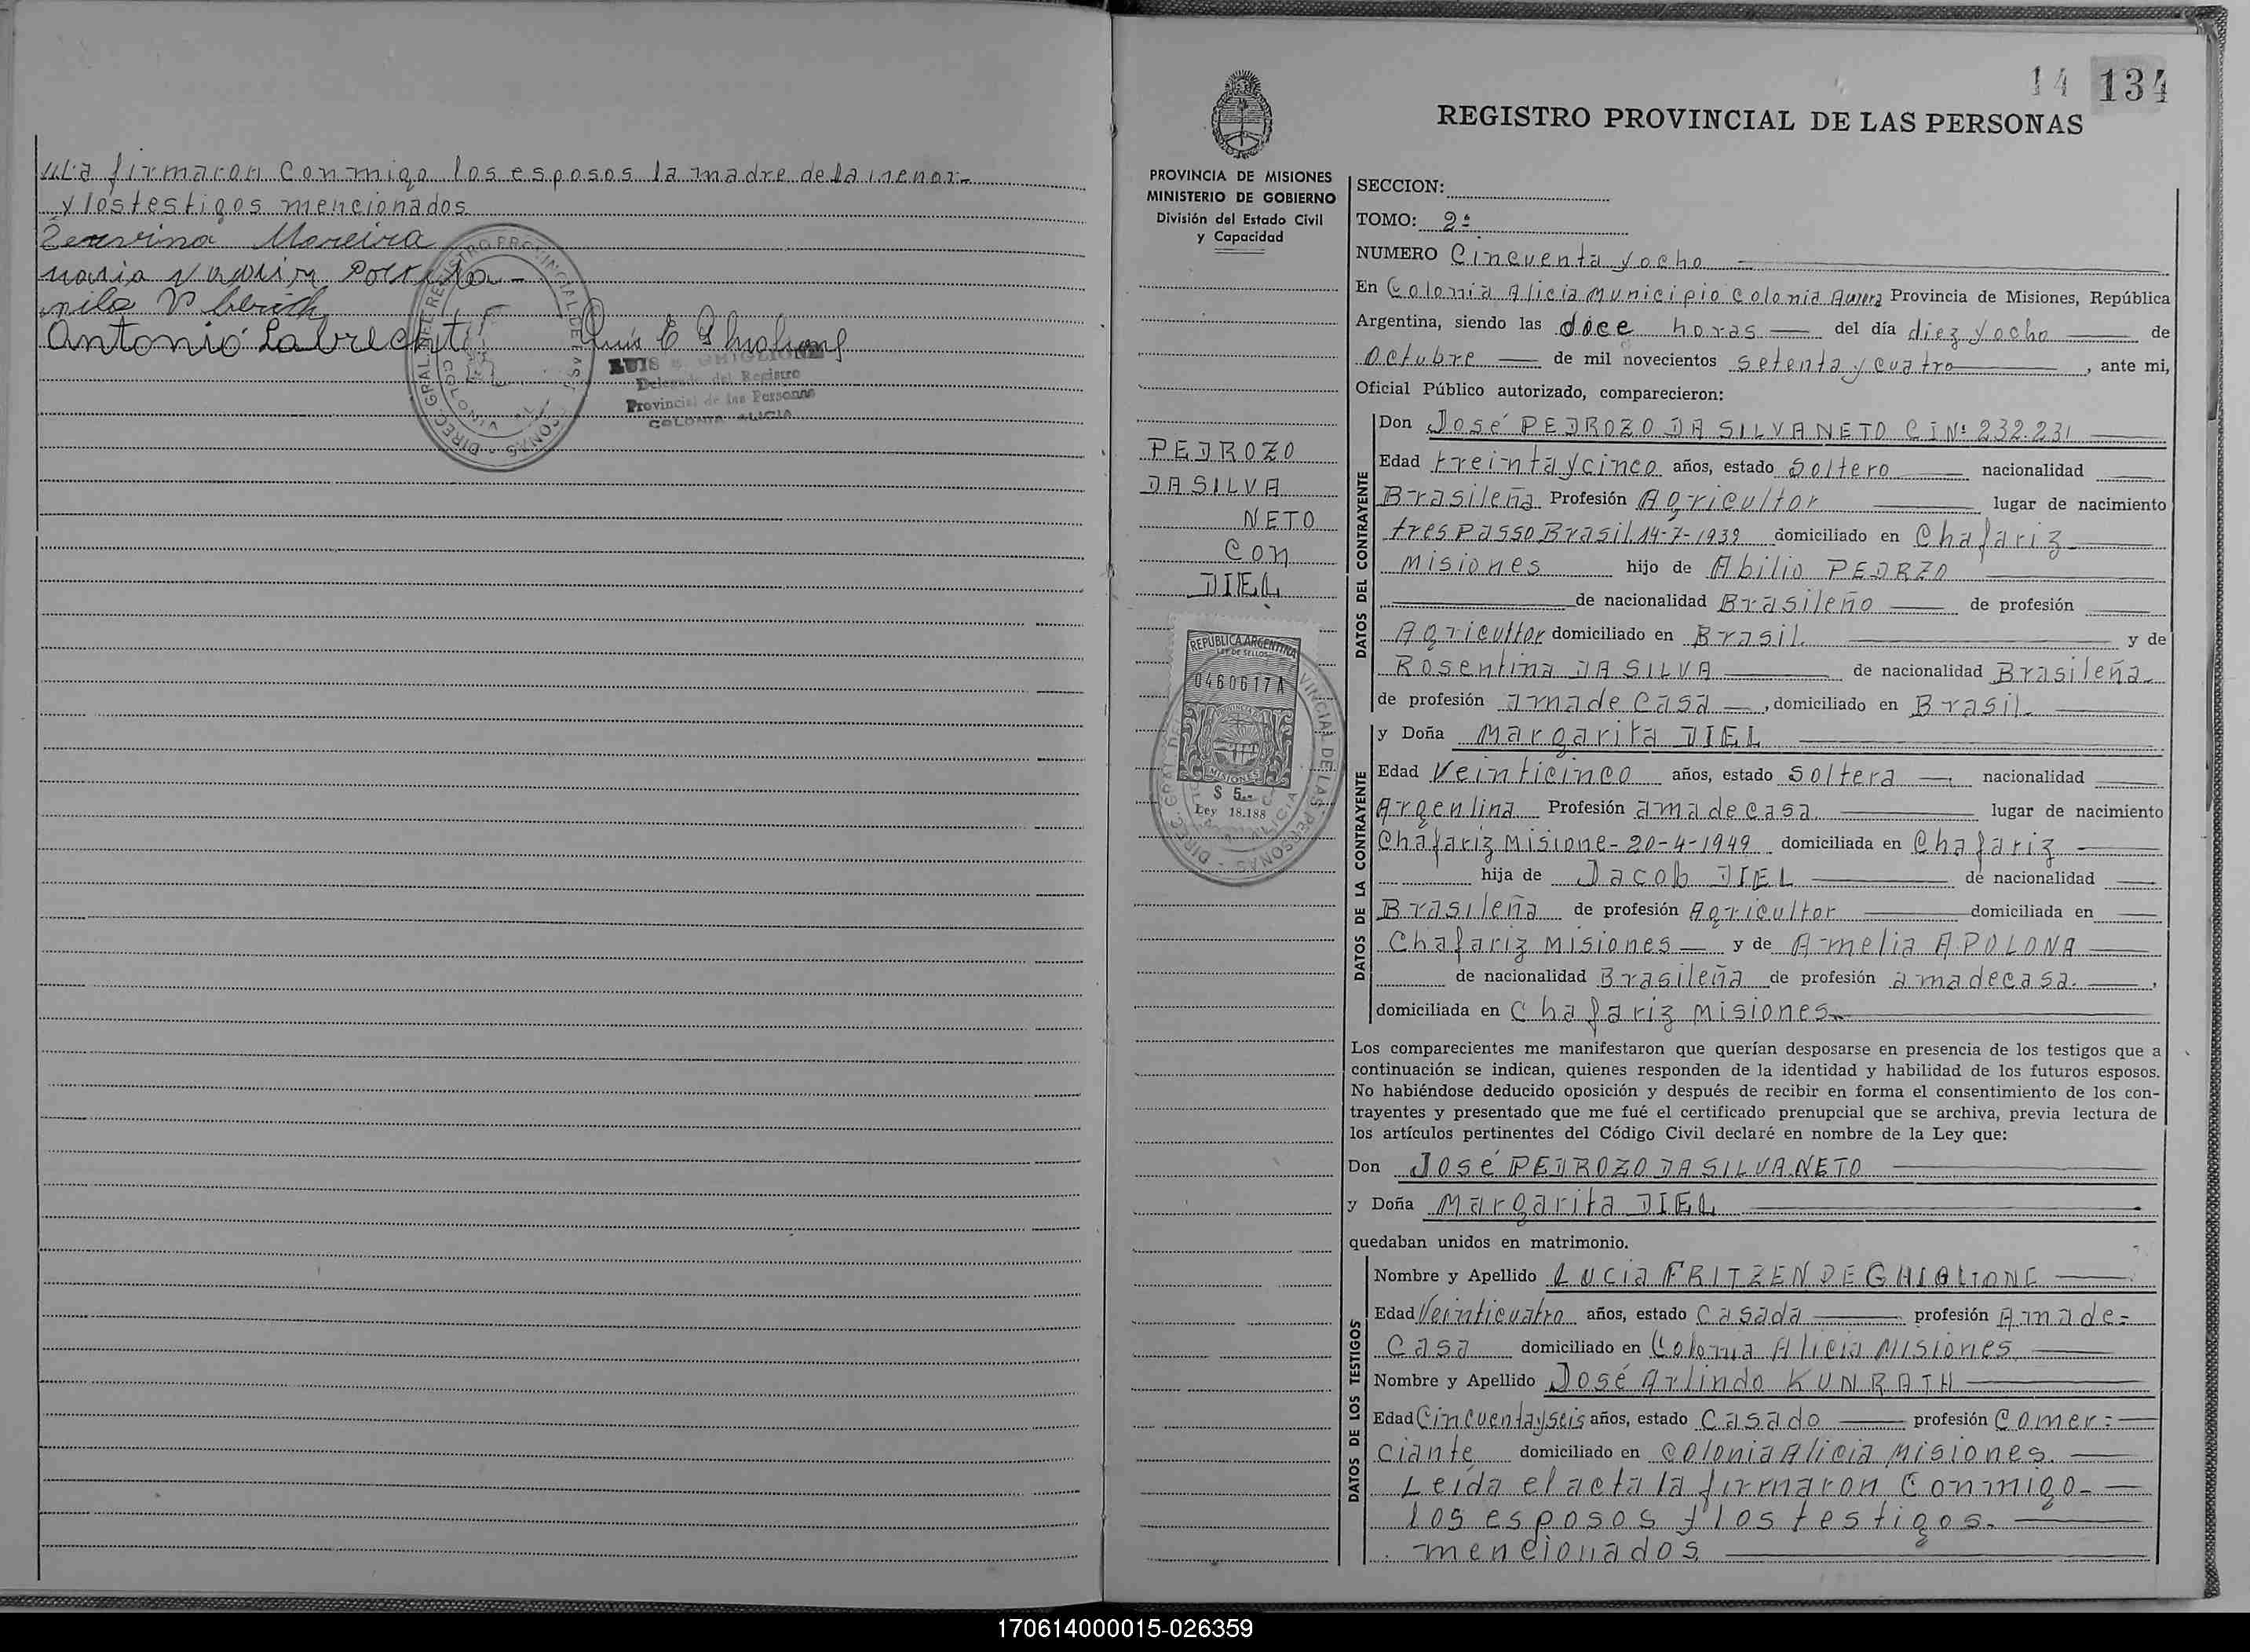 la firmaron conmigo los esposos la madre de la menor
y los testigos mencionados
Moreira
Antonio
LUIS E GHIGLIONE
Delegado del Registro
Provincial de las Personas
COLONIA ALICIA
14 134
REGISTRO PROVINCIAL DE LAS PERSONAS
PROVINCIA DE MISIONES
MINISTERIO DE GOBIERNO
División del Estado Civil
y Capacidad
PEDROZO
DA SILVA
NETO
CON
DIEL
REPUBLICA ARGENTINA
LEY DE SELLOS
0460617A
MISIONES
$ 5.-
Ley 18.188
SECCION:
TOMO: 2º
NUMERO Cincuenta y ocho
En Colonia Alicia Municipio Colonia Aurora Provincia de Misiones, República
Argentina, siendo las doce horas del día diez y ocho de
Octubre de mil novecientos setenta y cuatro, ante mi,
Oficial Público autorizado, comparecieron:
DATOS DEL CONTRAYENTE
Don José PEDROZO DA SILVA NETO CI Nº 232.231
Edad treinta y cinco años, estado Soltero nacionalidad
Brasileña Profesión Agricultor lugar de nacimiento
tres Passo Brasil 14-7-1939 domiciliado en Chafariz
Misiones hijo de Abilio PEDRZO
de nacionalidad Brasileño de profesión
Agricultor domiciliado en Brasil y de
Rosentina DA SILVA de nacionalidad Brasileña
de profesión ama de casa, domiciliado en Brasil
DATOS DE LA CONTRAYENTE
y Doña Margarita DIEL
Edad Veinticinco años, estado Soltera nacionalidad
Argentina Profesión ama de casa lugar de nacimiento
Chafariz Misione - 20-4-1949 domiciliada en Chafariz
hija de Jacob DIEL de nacionalidad
Brasileña de profesión Agricultor domiciliada en
Chafariz Misiones y de Amelia APOLONA
de nacionalidad Brasileña de profesión ama de casa,
domiciliada en Chafariz Misiones
Los comparecientes me manifestaron que querían desposarse en presencia de los testigos que a
continuación se indican, quienes responden de la identidad y habilidad de los futuros esposos.
No habiéndose deducido oposición y después de recibir en forma el consentimiento de los con-
trayentes y presentado que me fué el certificado prenupcial que se archiva, previa lectura de
los artículos pertinentes del Código Civil declaré en nombre de la Ley que:
Don José PEDROZO DA SILVA NETO
y Doña Margarita DIEL
quedaban unidos en matrimonio.
DATOS DE LOS TESTIGOS
Nombre y Apellido Lucia FRITZEN DE GHIGLIONE
Edad Veinticuatro años, estado Casada profesión Ama de=
Casa domiciliado en Colonia Alicia Misiones
Nombre y Apellido José Arlindo KUNRATH
Edad Cincuenta y seis años, estado Casado profesión Comer=
ciante domiciliado en Colonia Alicia Misiones.
Leída el acta la firmaron conmigo
los esposos y los testigos
mencionados
170614000015-026359